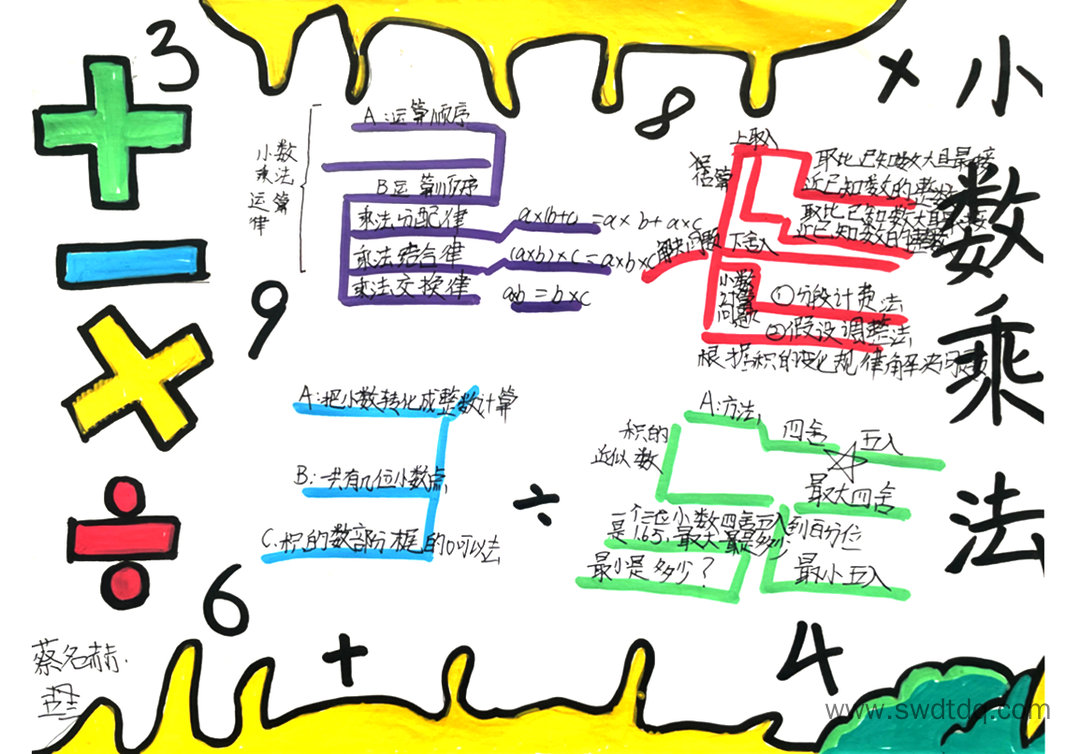 小数乘法
3
×
8
9
÷
6
+
4
小数
乘法
运算
律
A:运算顺序
B运算顺序
乘法分配律
a×(b+c =a×b+a×c
乘法结合律
(a×b)×c=a×b×c
乘法交换律
a×b=b×c
估算
上取入
取比已知数大且最接
近已知数的整数
下舍入
取比已知数大且最接
近已知数的整数
解决问题
小数
计算
问题
①分段计费法
②假设调整法
根据积的变化规律解决问题
A:把小数转化成整数计算
B:一共有几位小数点
C.积的数部分框的0可以去
积的
近似数
A:方法,
四舍
五入
最大四舍
一个三位小数四舍五入到百分位
是1.65,最大是多少
最小是多少?
最小五入
蔡名赫.
www.swdtdq.com